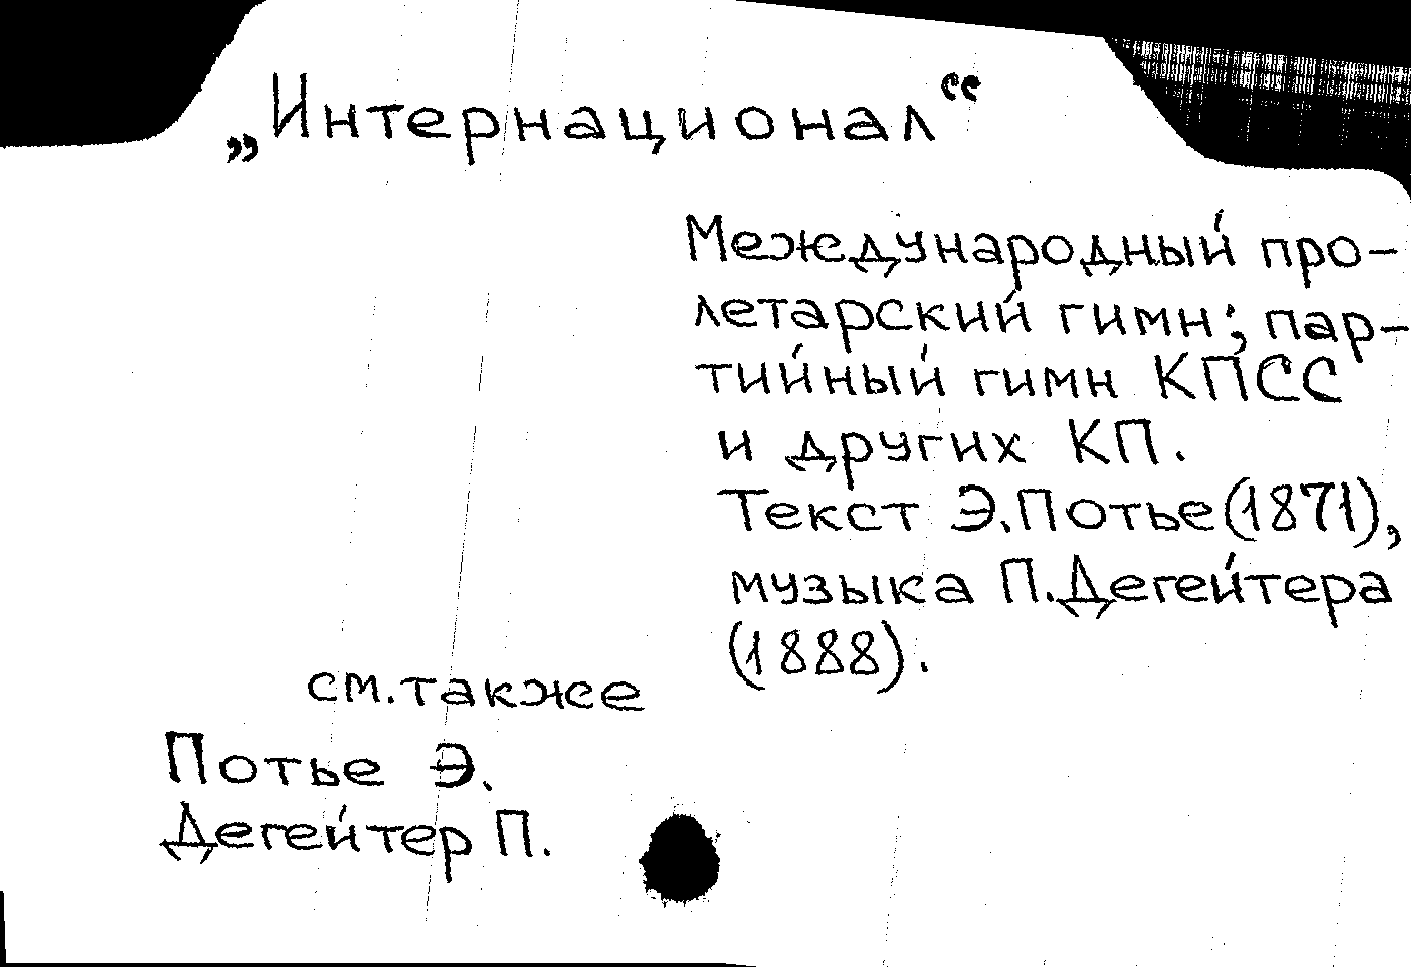 „Интернационал“
Международный про-
летарский гимн; пар-
тийный гимн КПСС
и других КП.
Текст Э.Потье(1871),
музыка П.Дегейтера
(1888).
см.также
Потье Э.
Дегейтер П.